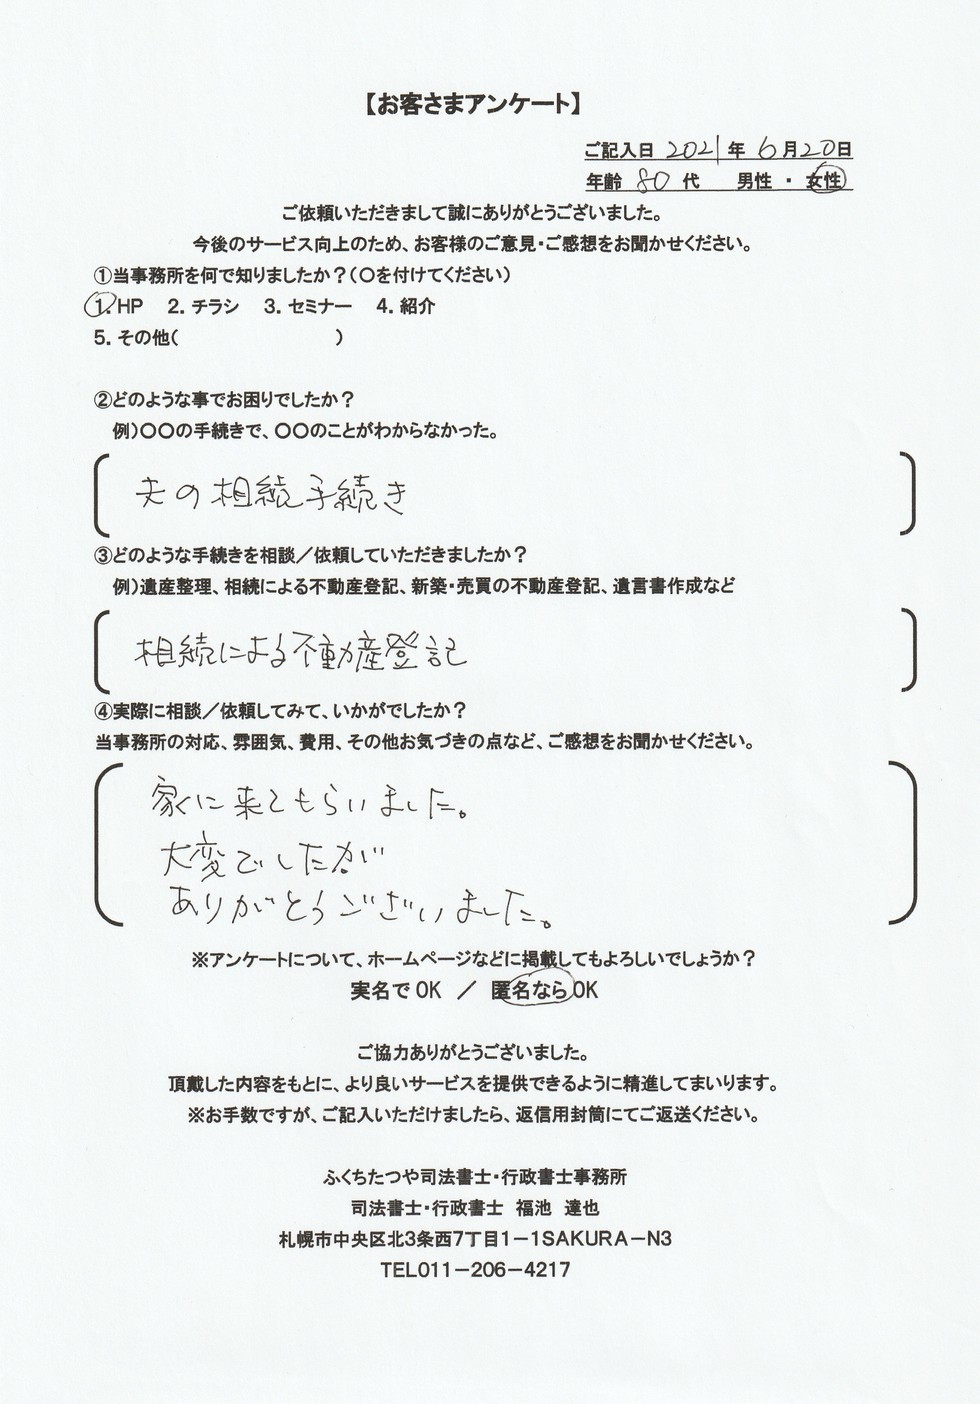 【お客さまアンケート】
ご記入日 2021 年 6 月 20 日
年齢 80 代 男性 ・ 女性
ご依頼いただきまして誠にありがとうございました。
今後のサービス向上のため、お客様のご意見・ご感想をお聞かせください。
①当事務所を何で知りましたか？（○を付けてください）
1. HP 2. チラシ 3. セミナー 4. 紹介
5. その他（ ）
②どのような事でお困りでしたか？
例）○○の手続きで、○○のことがわからなかった。
夫の相続手続き
③どのような手続きを相談／依頼していただきましたか？
例）遺産整理、相続による不動産登記、新築・売買の不動産登記、遺言書作成など
相続による不動産登記
④実際に相談／依頼してみて、いかがでしたか？
当事務所の対応、雰囲気、費用、その他お気づきの点など、ご感想をお聞かせください。
家に来てもらいました。
大変でしたが
ありがとうございました。
※アンケートについて、ホームページなどに掲載してもよろしいでしょうか？
実名でOK ／ 匿名ならOK
ご協力ありがとうございました。
頂戴した内容をもとに、より良いサービスを提供できるように精進してまいります。
※お手数ですが、ご記入いただけましたら、返信用封筒にてご返送ください。
ふくちたつや司法書士・行政書士事務所
司法書士・行政書士 福池 達也
札幌市中央区北3条西7丁目1－1SAKURA－N3
TEL011－206－4217